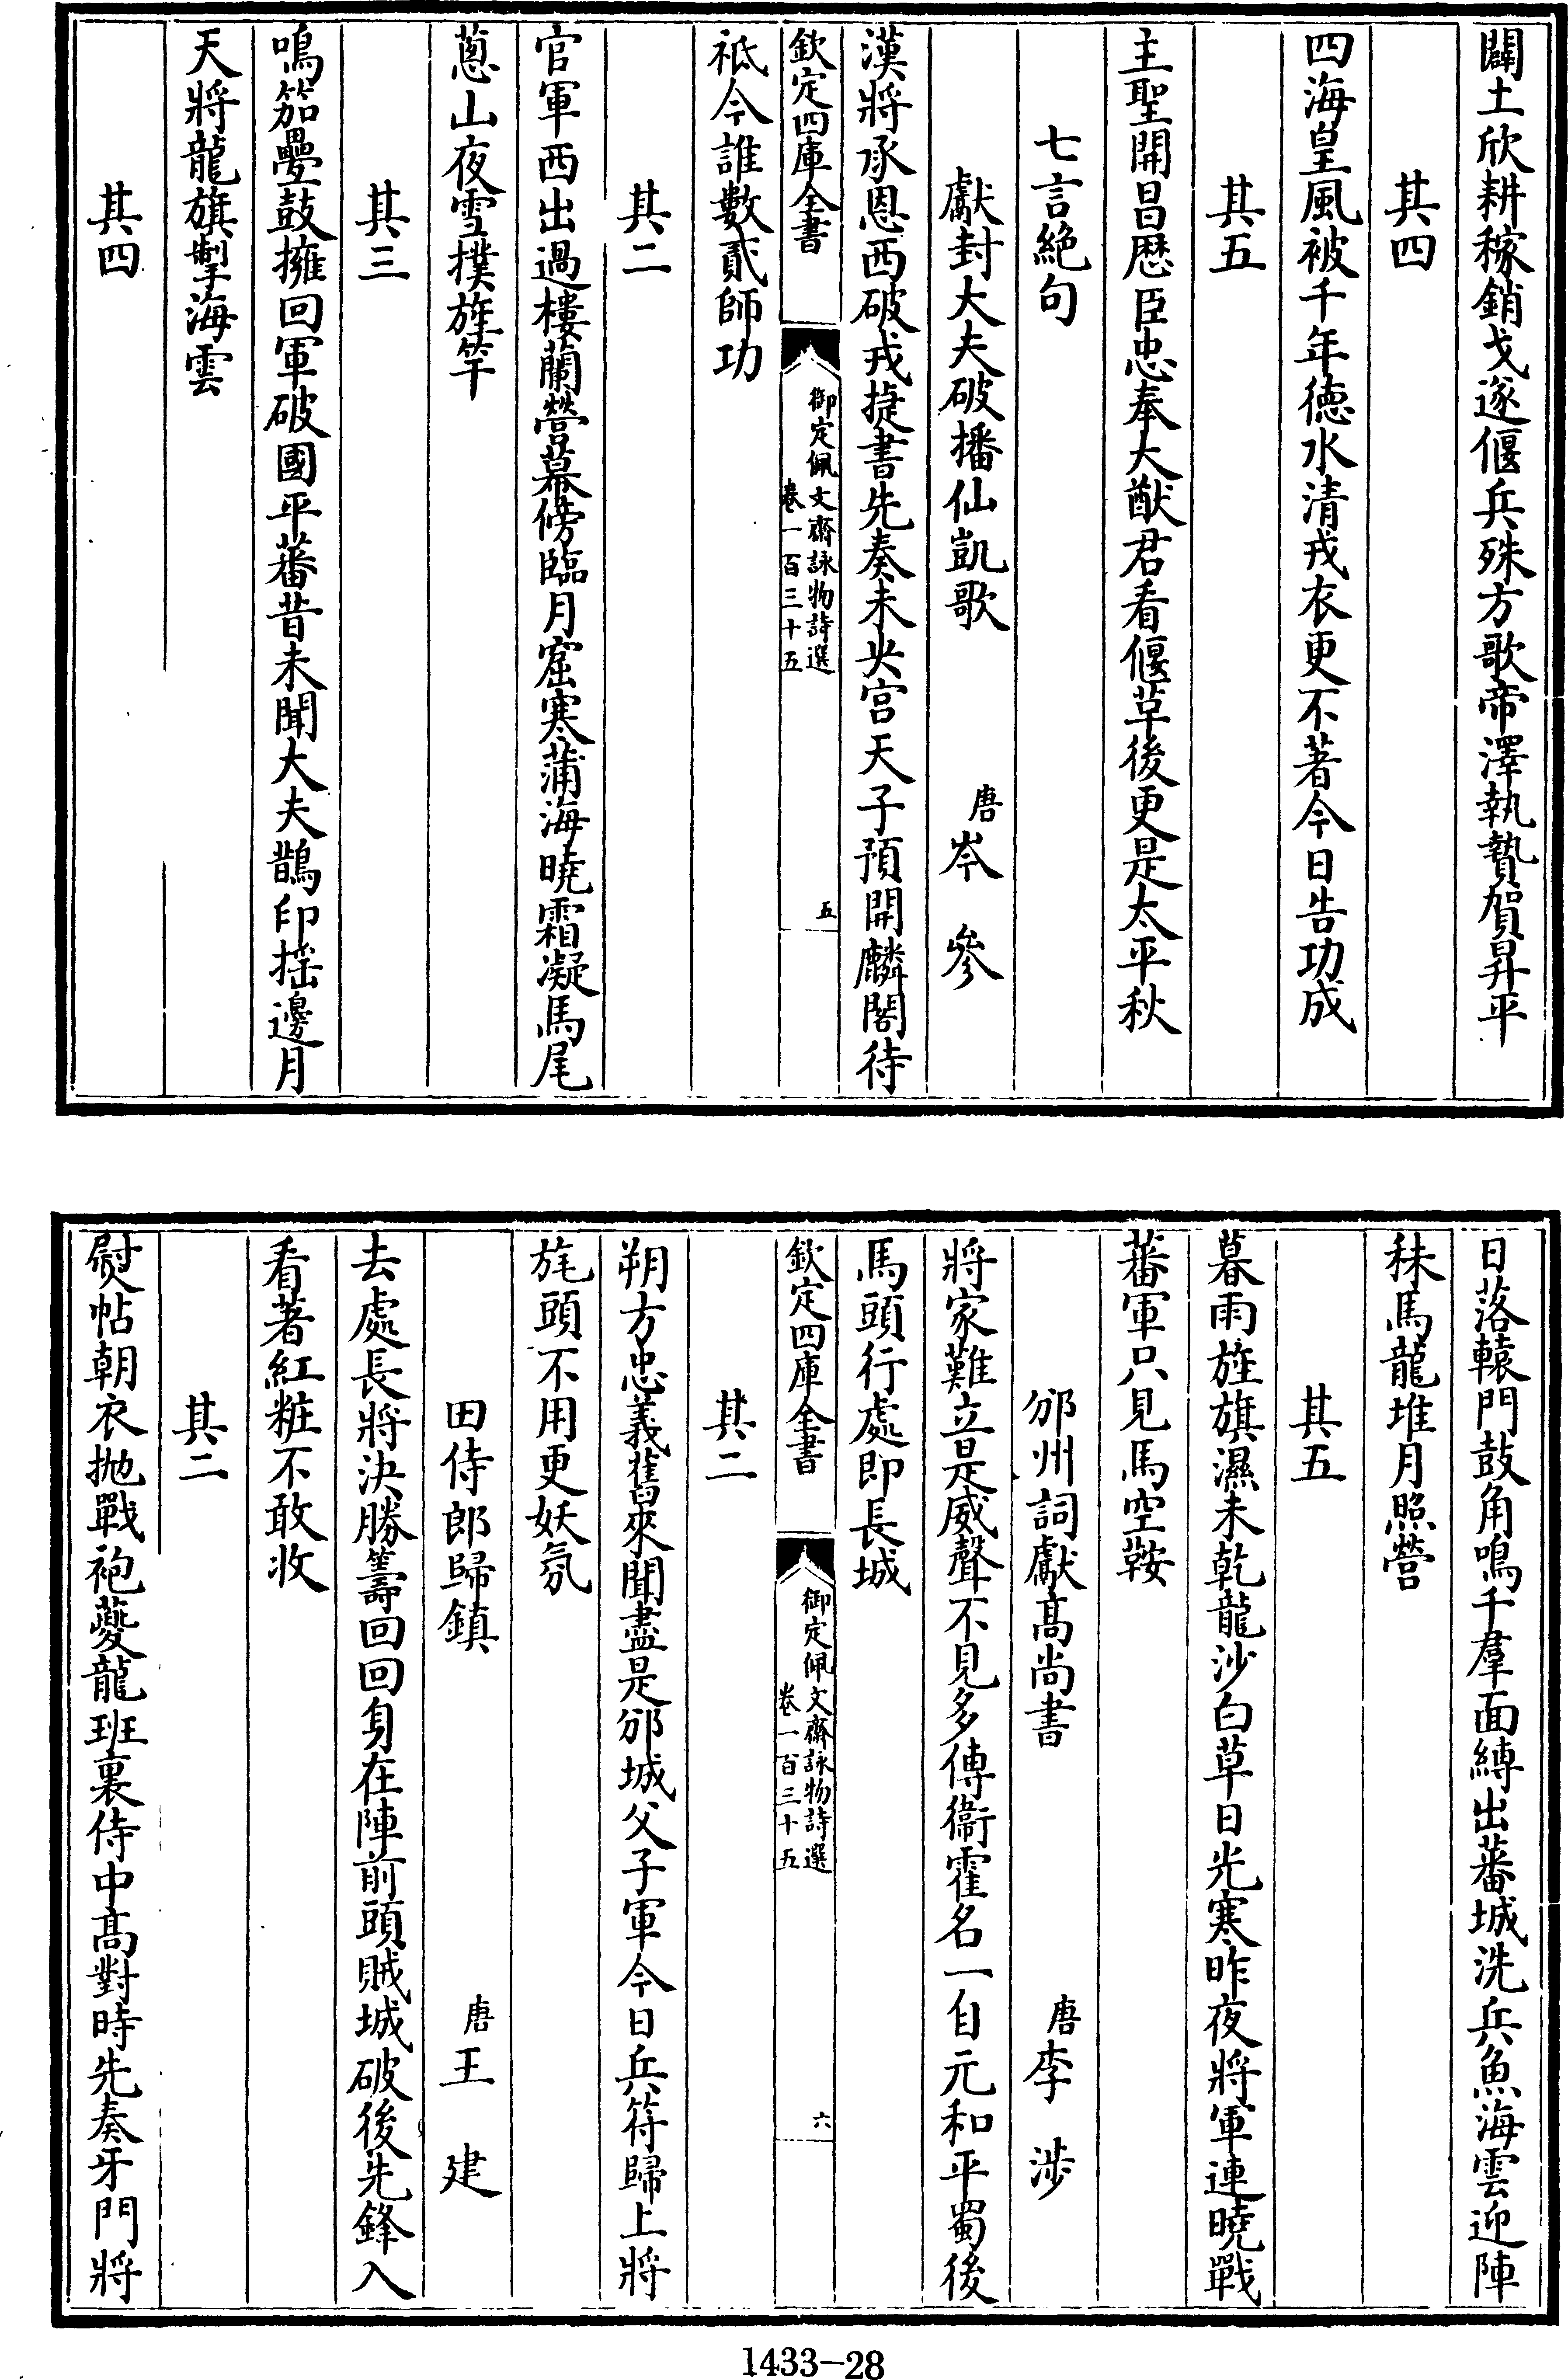 闢土欣耕稼銷戈遂偃兵殊方歌帝澤執贄賀昇平
其四
四海皇風被千年徳水清戎衣更不著今日告功成
其五
主聖開昌厯臣忠奉大猷君看偃草後更是太平秋
七言絶句
獻封大夫破播仙凱歌 唐岑參
漢將承恩西破戎捷書先奏未央宫天子預開麟閣待
欽定四庫全書 御定佩文齋詠物詩選 卷一百三十五 五
祗今誰數貳師功
其二
官軍西出過樓蘭營幕傍臨月窟寒蒲海曉霜凝馬尾
蔥山夜雪撲旌竿
其三
鳴笳疊鼓擁回軍破國平蕃昔未聞大夫鵲印揺邊月
天將龍旗掣海雲
其四
日落轅門鼓角鳴千羣面縛出蕃城洗兵魚海雲迎陣
秣馬龍堆月照營
其五
暮雨旌旗濕未乾龍沙白草日光寒昨夜將軍連曉戰
蕃軍只見馬空鞍
邠州詞獻髙尚書 唐李渉
將家難立是威聲不見多傳衞霍名一自元和平蜀後
馬頭行處即長城
欽定四庫全書 御定佩文齋詠物詩選 卷一百三十五 六
其二
朔方忠義舊來聞盡是邠城父子軍今日兵符歸上將
旄頭不用更妖氛
田侍郎歸鎮 唐王建
去處長將決勝籌回回身在陣前頭賊城破後先鋒入
看著紅粧不敢收
其二
熨帖朝衣抛戰袍夔龍班裏侍中髙對時先奏牙門將
1433-28